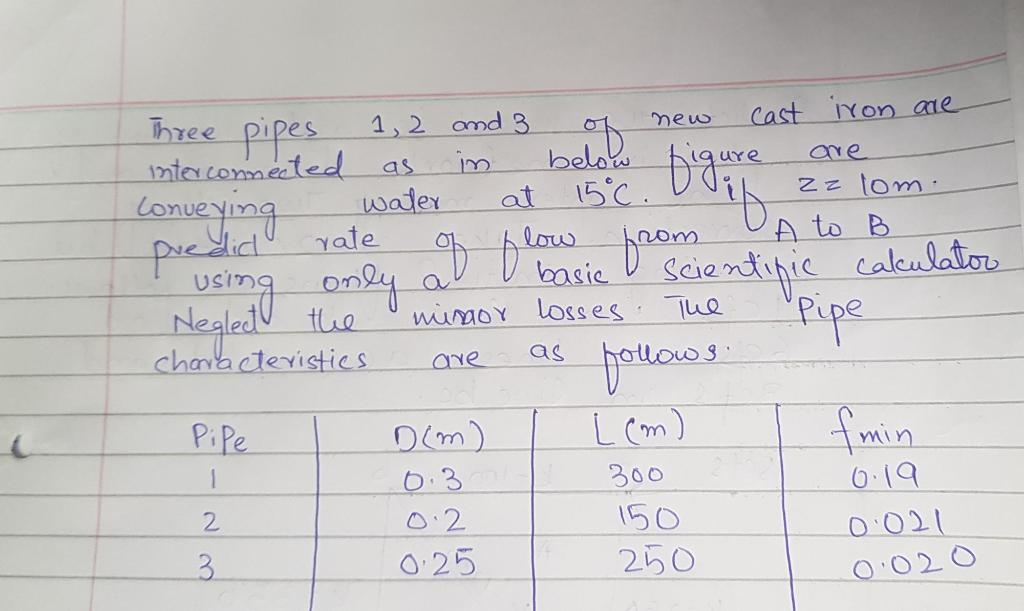 Three pipes 1, 2 and 3 of new cast iron are
interconnected as in below figure are
conveying water at 15°C. if z = 10m.
predict rate of flow from A to B
using only a basic scientific calculator
Neglect the minor losses. The Pipe
characteristics are as follows.
Pipe D(m) L(m) fmin
1 0.3 300 0.19
2 0.2 150 0.021
3 0.25 250 0.020